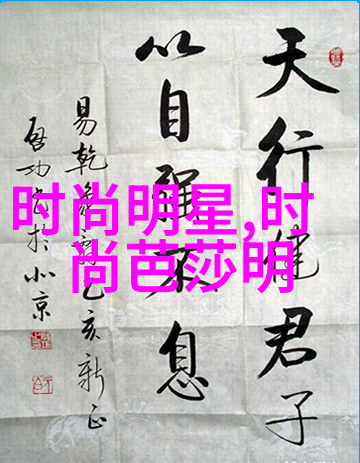 天行健君子
以自強不息
易乾象乙亥新正
啓功书於北京
时尚明星,时
尚芭莎明